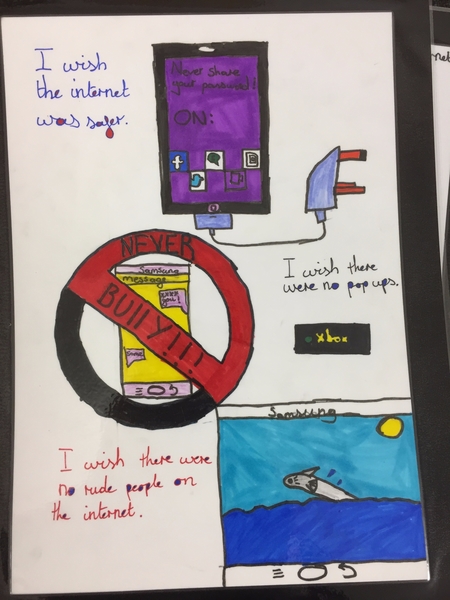 I wish
the internet
was safer.
Never share
your password!
ON:
f
NEVER
BULLY!!!
Samsung
message
you!
I wish there
were no pop ups.
xbox
Samsung
I wish there were
no rude people on
the internet.